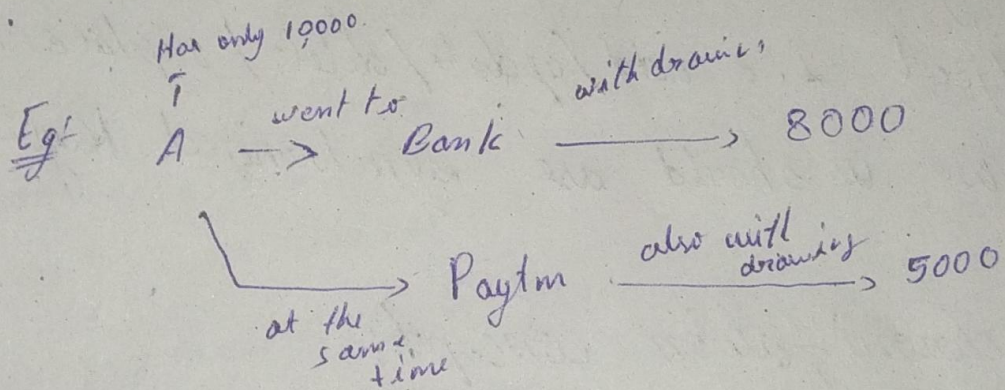 Has only 10,000.
Eg:- A → went to Bank withdrawing → 8000
→ at the same time Paytm also with drawing → 5000